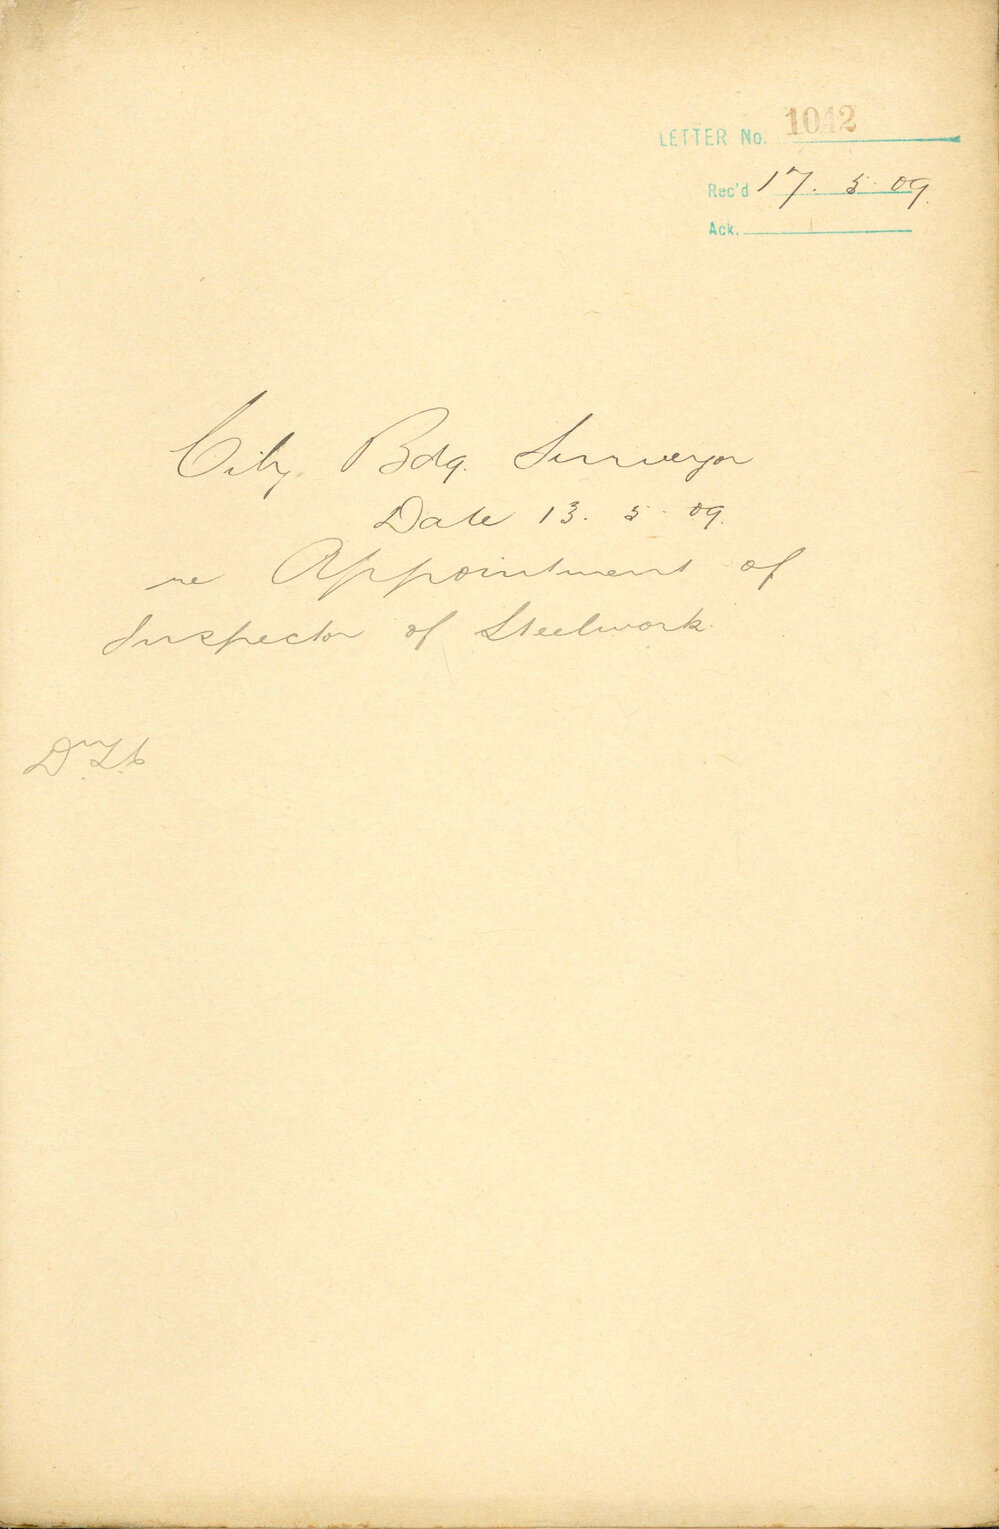 LETTER No. 1042
Rec'd 17. 5. 09.
Ack.
City Bdg. Surveyor
Date 13. 5. 09.
re Appointment of
Inspector of Steelwork.